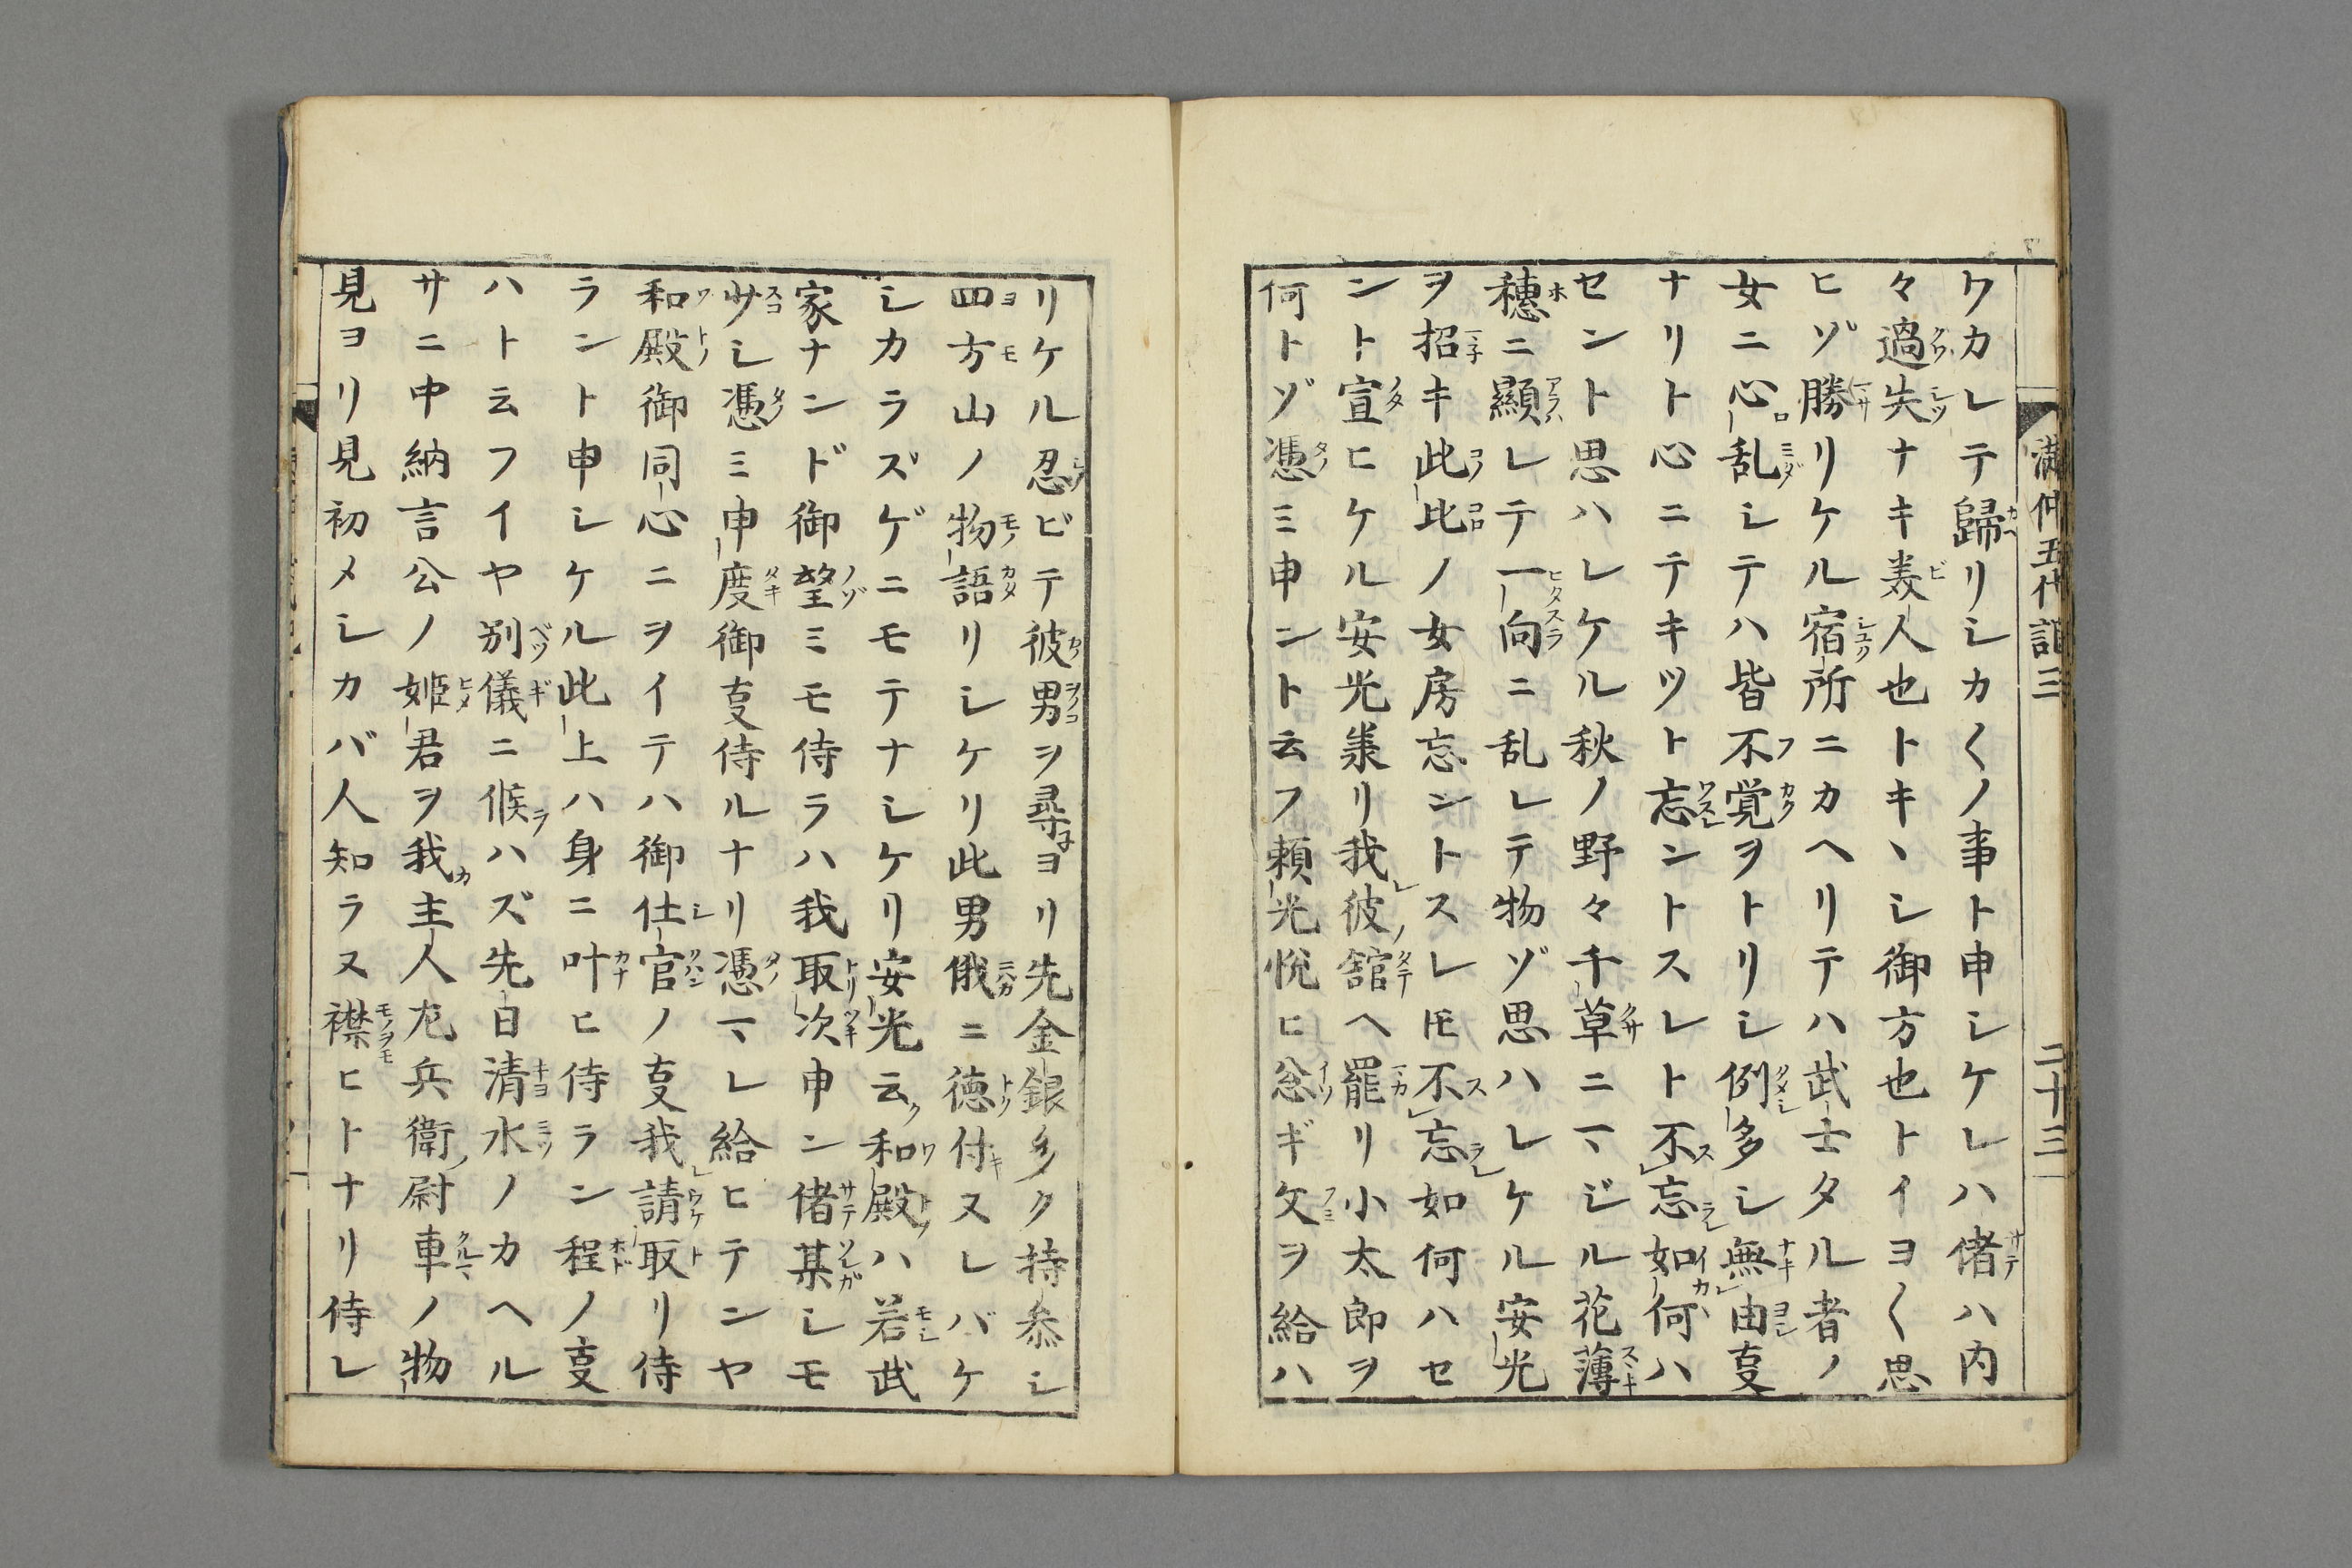 満仲五代記三 二十三
ワカレテ歸リシカ〱ノ事ト申シケレハ偖ハ内
々過失ナキ美人也トキヽシ御方也トイヨ〱思
ヒゾ勝リケル宿所ニカヘリテハ武士タル者ノ
女ニ心乱シテハ皆不覚ヲトリシ例多シ無由叓
ナリト心ニテキツト忘ントスレト不忘如何ハ
セント思ハレケル秋ノ野々千草ニマジル花薄
穗ニ顯レテ一向ニ乱レテ物ゾ思ハレケル安光
ヲ招キ此比ノ女房忘ントスレ𪜈不忘如何ハセ
ント宣ヒケル安光羕リ我彼舘ヘ罷リ小太郎ヲ
何トゾ憑ミ申ント云フ頼光悦ヒ忩ギ文ヲ給ハ
リケル忍ビテ彼男ヲ尋ヨリ先金銀多ク持叅シ
四方山ノ物語リシケリ此男俄ニ徳付ヌレバケ
シカラズゲニモテナシケリ安光云和殿ハ若武
家ナンド御望ミモ侍ラハ我取次申ン偖某シモ
少シ憑ミ申度御叓侍ルナリ憑マレ給ヒテンヤ
和殿御同心ニヲイテハ御仕官ノ叓我請取リ侍
ラント申シケル此上ハ身ニ叶ヒ侍ラン程ノ叓
ハト云フイヤ別儀ニ候ハズ先日清水ノカヘル
サニ中納言公ノ姫君ヲ我主人左兵衛尉車ノ物
見ヨリ見初メシカバ人知ラヌ襟ヒトナリ侍レ